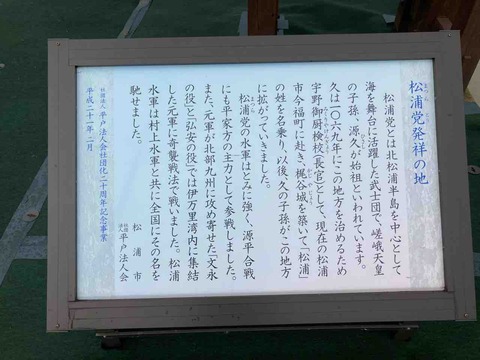 松浦党発祥の地
松浦党とは北松浦半島を中心として
海を舞台に活躍した武士団で、嵯峨天皇
の子孫、源久が始祖といわれています。
久は一〇六九年にこの地方を治めるため
宇野御厨検校(長官)として、現在の松浦
市今福町に赴き、梶谷城を築いて「松浦」
の姓を名乗り、以後、久の子孫がこの地方
に拡がっていきました。
松浦党の水軍はとみに強く、源平合戦
にも平家方の主力として参戦しました。
また、元軍が北部九州に攻め寄せた「文永
の役」と「弘安の役」では伊万里湾内に集結
した元軍に奇襲戦法で戦いました。松浦
水軍は村上水軍と共に全国にその名を
馳せました。
松浦市
社団法人 平戸法人会
社団法人 平戸法人会社団化二十周年記念事業
平成二十一年二月